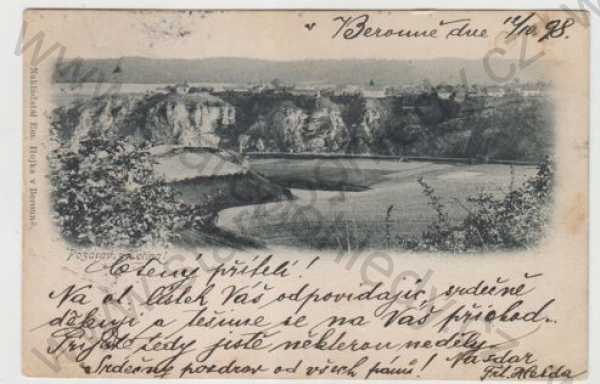 V Berouně dne 12/10 98.
Nakladatel Em. Hojka v Berouně.
Pozdrav
Ctěný příteli!
Na ct. lístek Váš odpovídajíc, srdečně
děkuje a těšíme se na Váš příchod.
Přijďte tedy jistě některou neděli.
Srdečný pozdrav od všech pánů! Nazdar